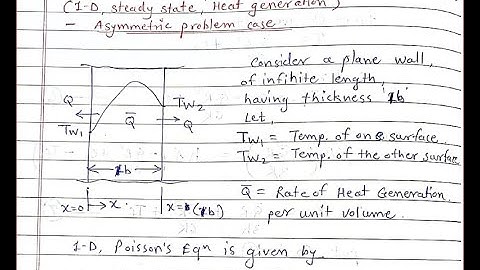 (1-D, steady state, Heat generation)
- Asymmetric problem case
Consider a plane wall,
of infinite length,
having thickness 'b'
Let,
TW1 = Temp. of one surface.
TW2 = Temp. of the other surface
Q̄ = Rate of Heat Generation
per unit volume.
Q
TW1
Q̄
TW2
Q
b
x=0 x
x=b
1-D, Poisson's Eqn is given by